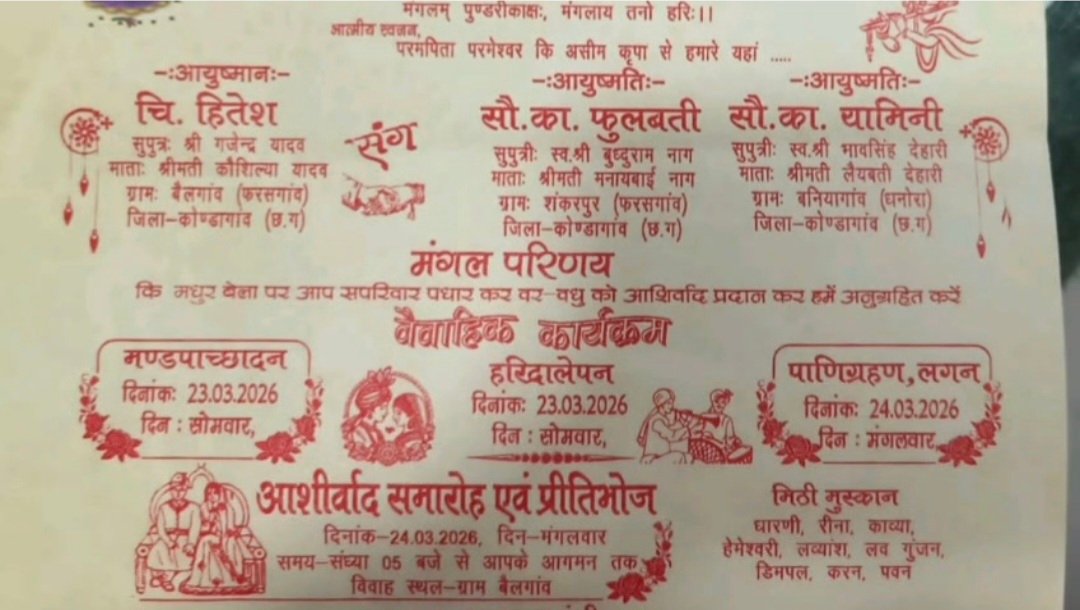 मंगलम् पुण्डरीकाक्षः, मंगलाय तनो हरिः।।
आत्मीय स्वजन,
परमपिता परमेश्वर कि असीम कृपा से हमारे यहां .....
-ःआयुष्मानः-
चि. हितेश
सुपुत्रः श्री गजेन्द्र यादव
माताः श्रीमती कौशिल्या यादव
ग्रामः बैलगांव (फरसगांव)
जिला-कोण्डागांव (छ.ग)
संग
-ःआयुष्मतिः-
सौ.का. फुलबती
सुपुत्रीः स्व.श्री बुध्दुराम नाग
माताः श्रीमती मनायबाई नाग
ग्रामः शंकरपुर (फरसगांव)
जिला-कोण्डागांव (छ.ग)
-ःआयुष्मतिः-
सौ.का. यामिनी
सुपुत्रीः स्व.श्री भावसिंह देहारी
माताः श्रीमती लैयबती देहारी
ग्रामः बनियागांव (धनोरा)
जिला-कोण्डागांव (छ.ग)
मंगल परिणय
कि मधुर बेला पर आप सपरिवार पधार कर वर-वधु को आशिर्वाद प्रदान कर हमें अनुग्रहित करें
वैवाहिक कार्यक्रम
मण्डपाच्छादन
दिनांकः 23.03.2026
दिन : सोमवार,
हरिद्रालेपन
दिनांकः 23.03.2026
दिन : सोमवार,
पाणिग्रहण, लगन
दिनांकः 24.03.2026
दिन : मंगलवार,
आशीर्वाद समारोह एवं प्रीतिभोज
दिनांक-24.03.2026, दिन-मंगलवार
समय-संध्या 05 बजे से आपके आगमन तक
विवाह स्थल-ग्राम बैलगांव
मिठी मुस्कान
धारणी, रीना, काव्या,
हेमेश्वरी, लव्यांश, लव गुंजन,
डिमपल, करन, पवन